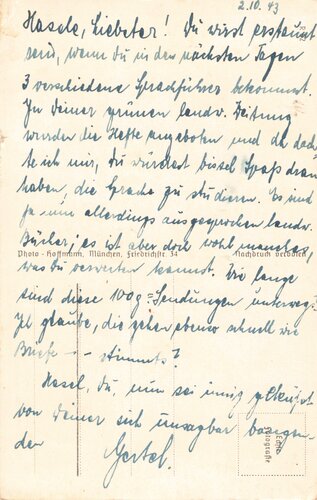 2.10.43
Hasele, Liebster! Du wirst erstaunt
sein, wenn du in den nächsten Tagen
3 verschiedene Sprachführer bekommst.
In deiner grünen landw. Zeitung
wurden die Hefte angeboten und da dach-
te ich mir, du würdest bissel Spaß dran
haben, die Sprache zu studieren. Es sind
ja nun allerdings ausgesprochen landw.
Bücher; es ist aber doch wohl manches,
Photo-Hoffmann, München, Friedrichstr. 34 Nachdruck verboten
was du verwerten kannst. Wie lange
sind diese 100g=Sendungen unterwegs?
Ich glaube, die gehen ebenso schnell wie
Briefe - - stimmts?
Hasel, du, nun sei innig geküßt
von deiner sich unsagbar bangen-
den Gertel.
Echte
Fotografie